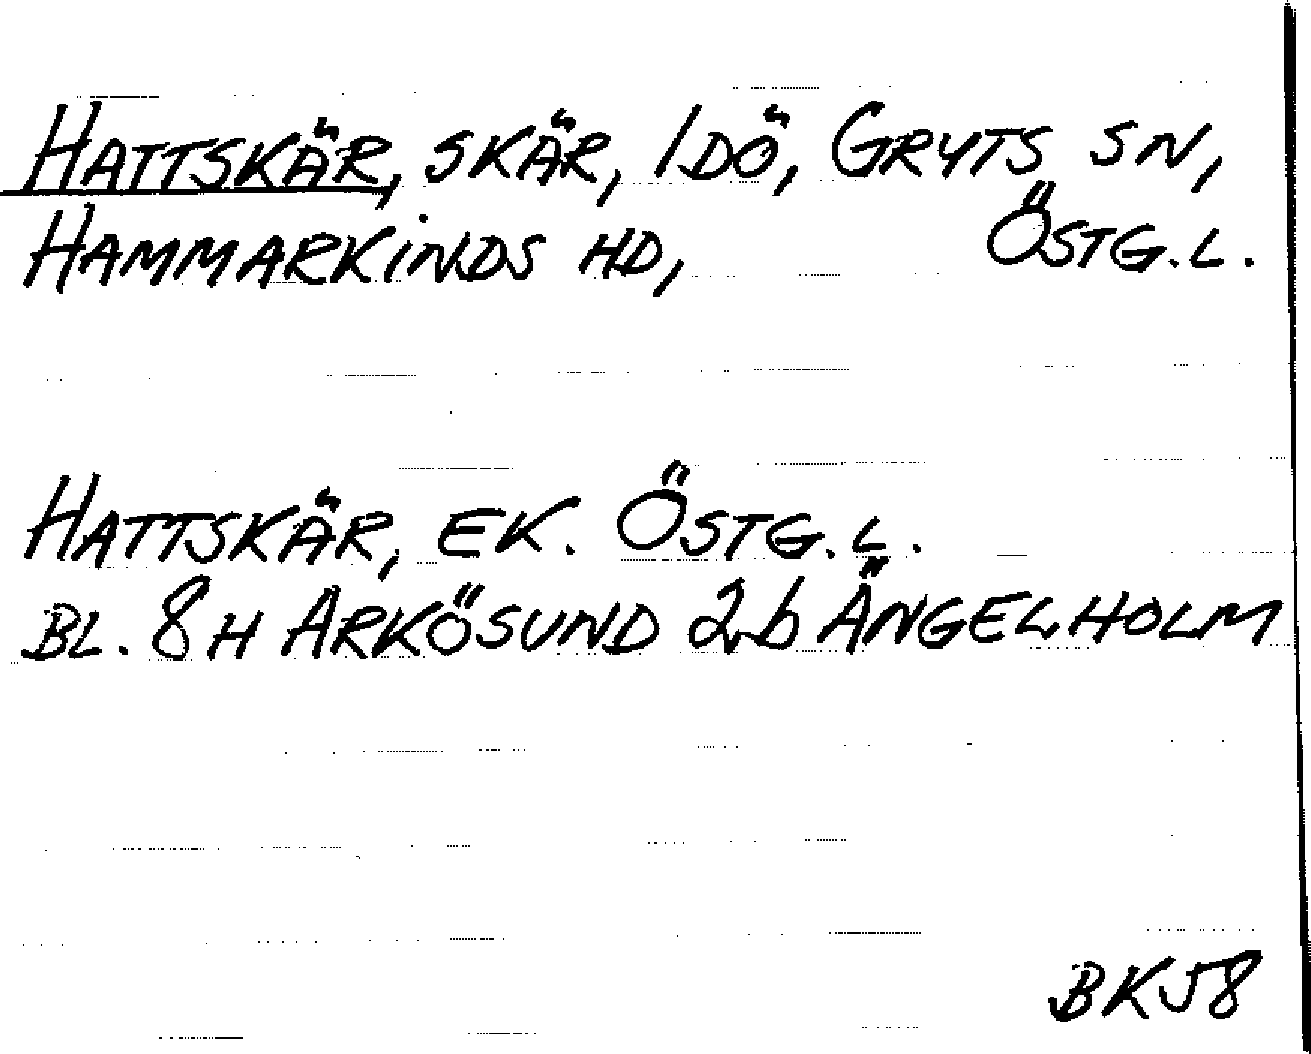 HATTSKÄR, SKÄR, IDÖ, GRYTS SN,
HAMMARKINDS HD, ÖSTG.L.
HATTSKÄR, EK. ÖSTG.L.
BL. 8H ARKÖSUND 2b ÄNGELHOLM
BK58